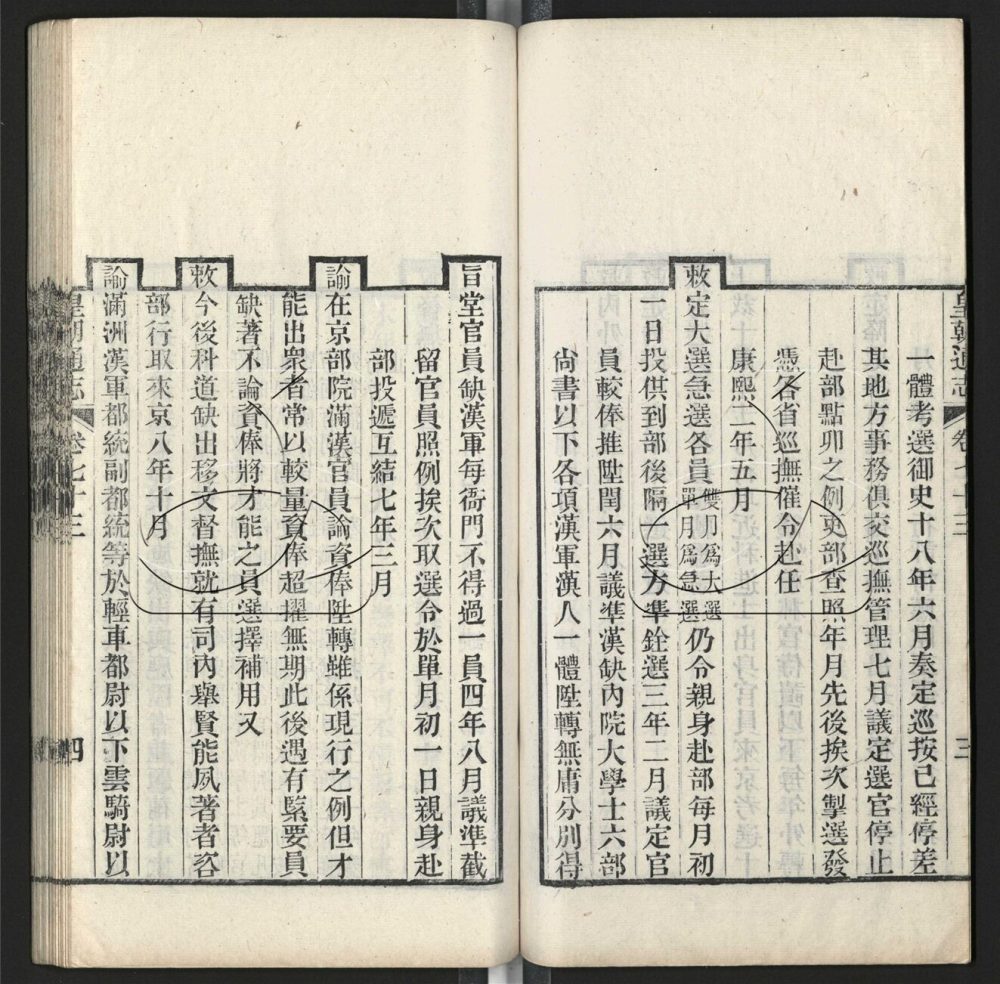 一體考選御史十八年六月奏定巡按已經停差
其地方事務俱交巡撫管理七月議定選官停止
赴部點卯之例吏部查照年月先後挨次掣選發
憑各省巡撫催令赴任
康熙二年五月
敕定大選急選各員雙月爲大選單月爲急選仍令親身赴部每月初
一日投供到部後隔一選方準銓選三年二月議定官
員較俸推陞閏六月議準漢缺內院大學士六部
尚書以下各項漢軍漢人一體陞轉無庸分別得
旨堂官員缺漢軍每衙門不得過一員四年八月議準截
留官員照例挨次取選令於單月初一日親身赴
部投遞互結七年三月
諭在京部院滿漢官員論資俸陞轉雖係現行之例但才
能出衆者常以較量資俸超擢無期此後遇有緊要員
缺著不論資俸將才能之員選擇補用又
敕今後科道缺出移文督撫就有司內舉賢能夙著者咨
部行取來京八年十月
諭滿洲漢軍都統副都統等於輕車都尉以下雲騎尉以
皇朝通志
卷七十三
四